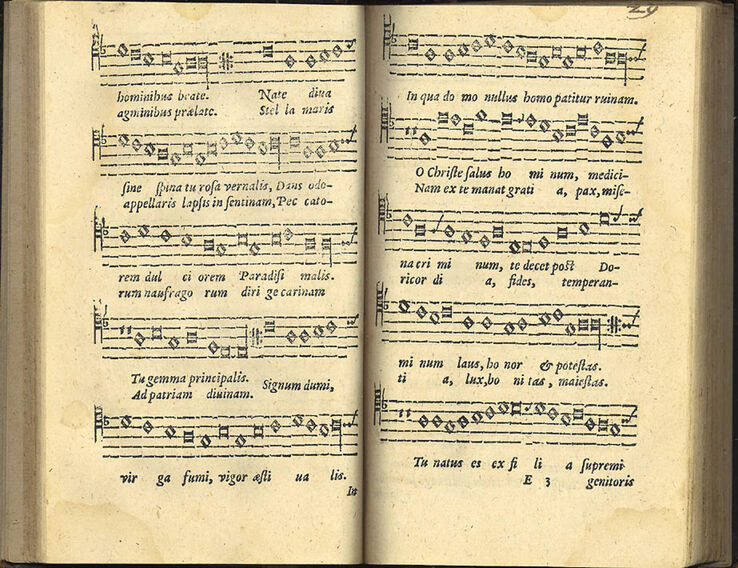 hominibus beate. Nate diua
agminibus prælate. Stel la maris
sine spina tu rosa vernalis, Dans odo-
appellaris lapsis in sentinam, Pec cato-
rem dul ci orem Paradisi malis.
rum naufrago rum diri ge carinam
Tu gemma principalis. Signum dumi,
Ad patriam diuinam.
vir ga fumi, vigor æsti ua lis.
In
29
In qua do mo nullus homo patitur ruinam.
O Christe salus ho mi num, medici-
Nam ex te manat grati a, pax, mise-
na cri mi num, te decet post Do-
ricor di a, fides, temperan-
mi num laus, ho nor & potestas.
ti a, lux, bo ni tas, maiestas.
Tu natus es ex fi li a supremi
E 3 genitoris